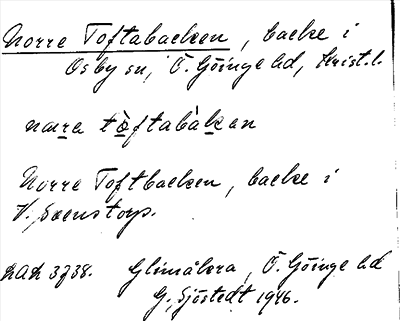 Norre Toftabacken, backe i
Osby sn, Ö. Göinge hd, Krist. l.
næra tòftabàkan
Norre Toftbacken, backe i
V. Svenstorp.
LAL 3738. Glimåkra, Ö. Göinge hd
G. Sjöstedt 1946.